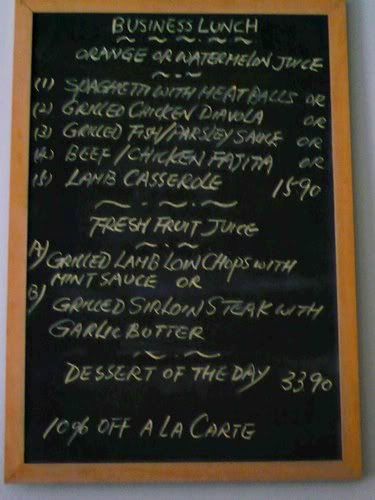 BUSINESS LUNCH
ORANGE OR WATERMELON JUICE
(1) SPAGHETTI WITH MEATBALLS OR
(2) GRILLED CHICKEN DIAVOLA OR
(3) GRILLED FISH/PARSLEY SAUCE OR
(4) BEEF/CHICKEN FAJITA OR
(5) LAMB CASSEROLE 1590
FRESH FRUIT JUICE
A) GRILLED LAMB LOIN CHOPS WITH
MINT SAUCE OR
B) GRILLED SIRLOIN STEAK WITH
GARLIC BUTTER
DESSERT OF THE DAY 3390
10% OFF A LA CARTE